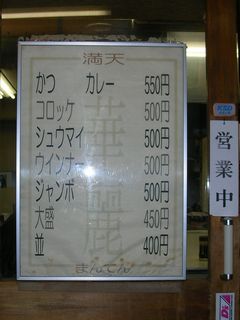 満天
かつ カレー 550円
コロッケ 500円
シュウマイ 500円
ウインナー 500円
ジャンボ 500円
大盛 450円
並 400円
まんてん
華麗
営業中